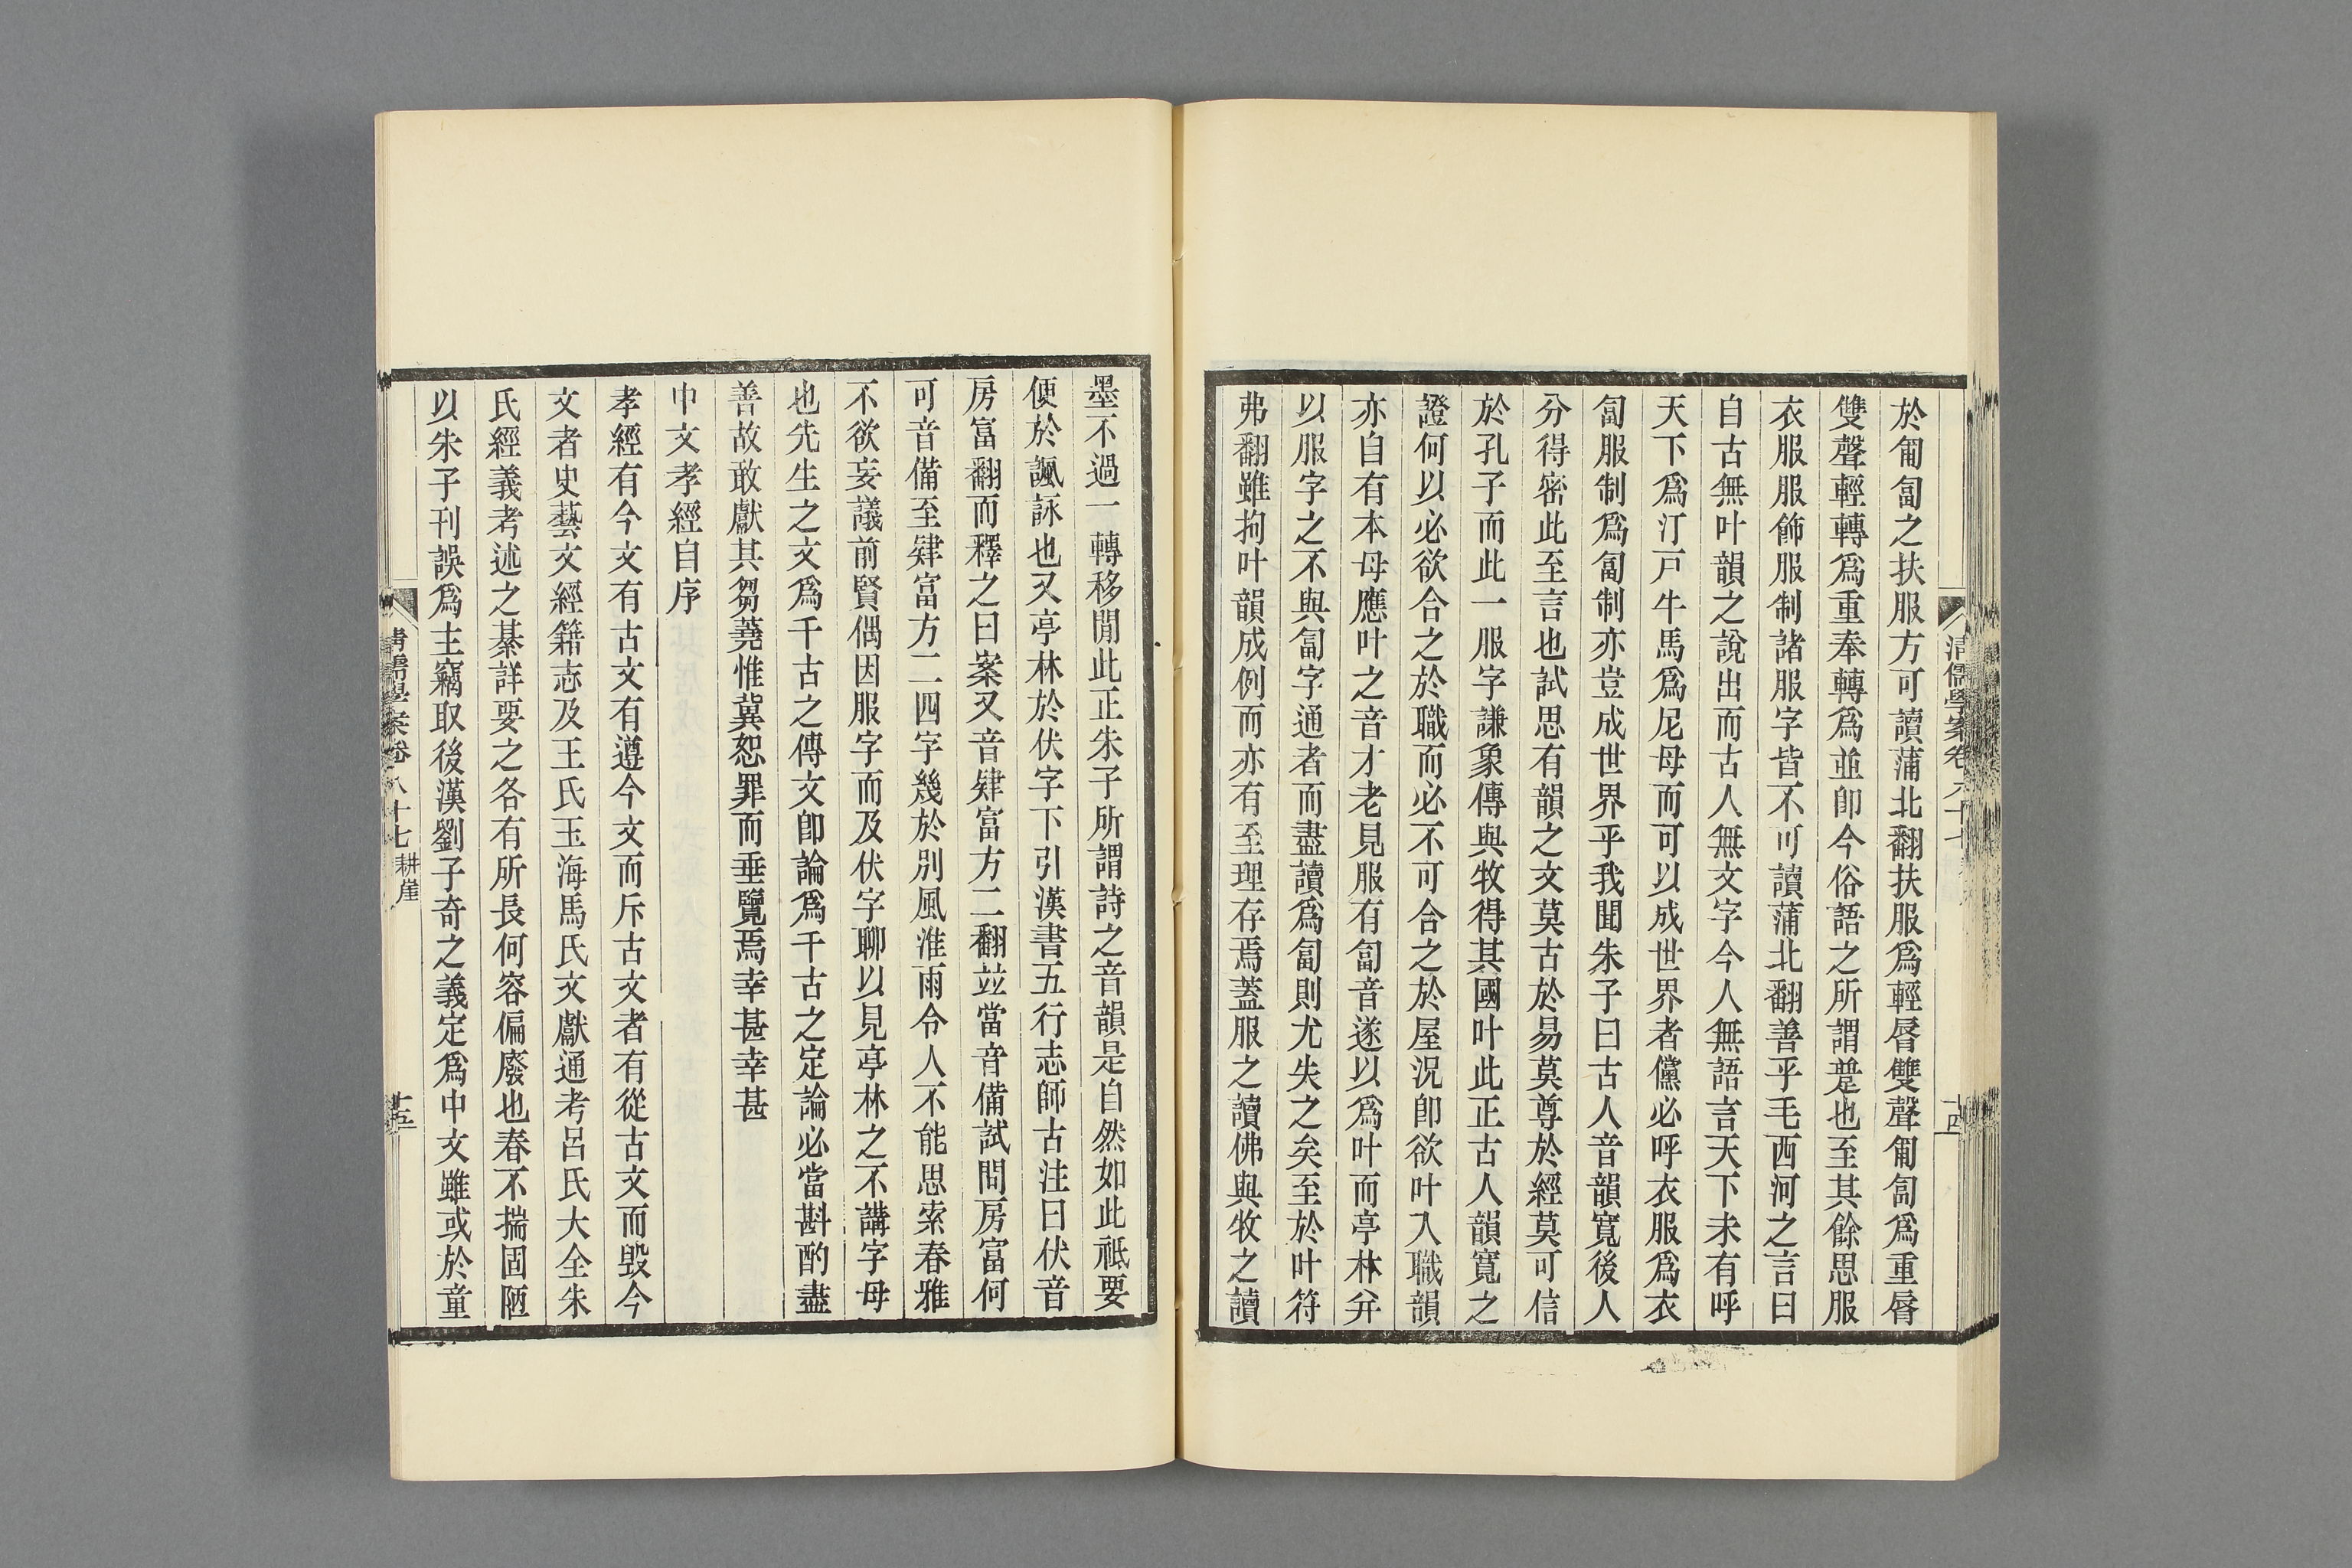 清儒學案卷八十七
十四
於匍匐之扶服方可讀蒲北翻扶服爲輕脣雙聲匍匐爲重脣
雙聲輕轉爲重奉轉爲並卽今俗語之所謂踅也至其餘思服
衣服服飾服制諸服字皆不可讀蒲北翻善乎毛西河之言曰
自古無叶韻之說出而古人無文字今人無語言天下未有呼
天下爲汀戸牛馬爲尼母而可以成世界者儻必呼衣服爲衣
匐服制爲匐制亦豈成世界乎我聞朱子曰古人音韻寬後人
分得密此至言也試思有韻之文莫古於易莫尊於經莫可信
於孔子而此一服字謙象傳與牧得其國叶此正古人韻寬之
證何以必欲合之於職而必不可合之於屋況卽欲叶入職韻
亦自有本母應叶之音才老見服有匐音遂以爲叶而亭林幷
以服字之不與匐字通者而盡讀爲匐則尤失之矣至於叶符
弗翻雖拘叶韻成例而亦有至理存焉蓋服之讀佛與牧之讀
墨不過一轉移閒此正朱子所謂詩之音韻是自然如此祗要
便於諷詠也又亭林於伏字下引漢書五行志師古注曰伏音
房富翻而釋之曰案又音肄富方二翻竝當音備試問房富何
可音備至肄富方二四字幾於別風淮雨令人不能思索春雅
不欲妄議前賢偶因服字而及伏字聊以見亭林之不講字母
也先生之文爲千古之傳文卽論爲千古之定論必當斟酌盡
善故敢獻其芻蕘惟冀恕罪而垂覽焉幸甚幸甚
中文孝經自序
孝經有今文有古文有遵今文而斥古文者有從古文而毀今
文者史藝文經籍志及王氏玉海馬氏文獻通考呂氏大全朱
氏經義考述之綦詳要之各有所長何容偏廢也春不揣固陋
以朱子刊誤爲主竊取後漢劉子奇之義定爲中文雖或於童
清儒學案卷八十七 耕崖
十五